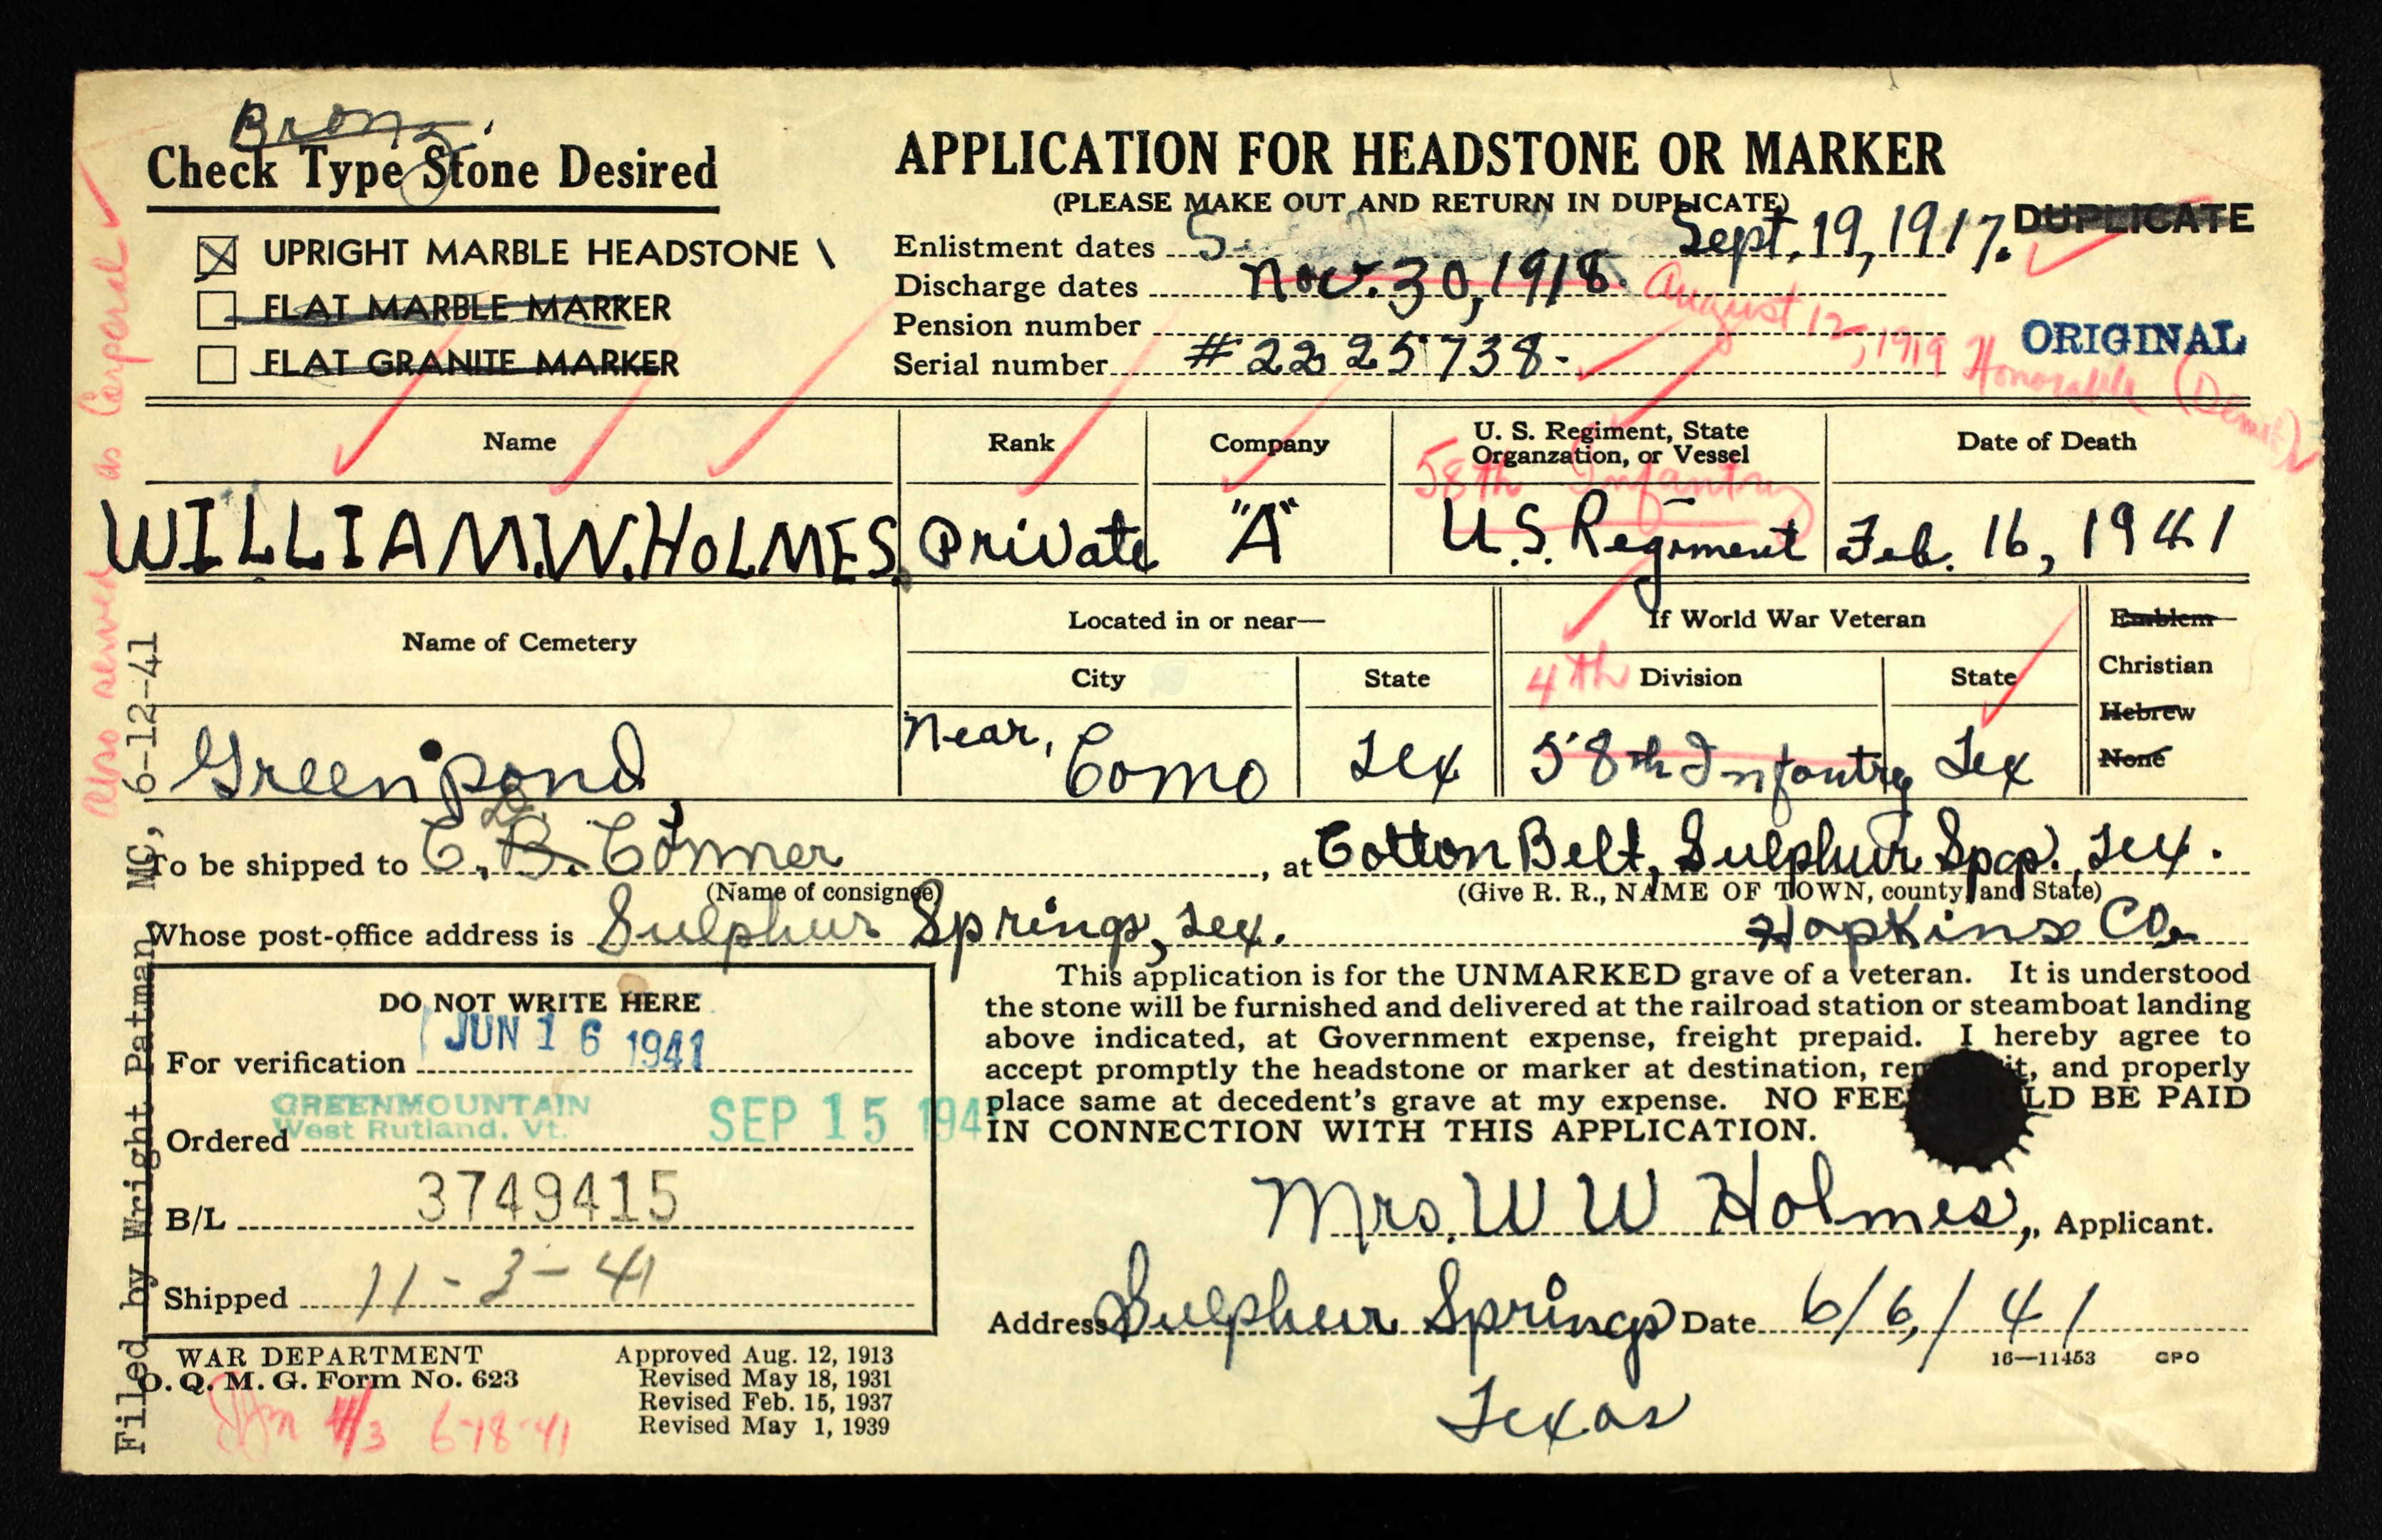 Bronz.
Check Type Stone Desired
UPRIGHT MARBLE HEADSTONE \
FLAT MARBLE MARKER
FLAT GRANITE MARKER
APPLICATION FOR HEADSTONE OR MARKER
(PLEASE MAKE OUT AND RETURN IN DUPLICATE)
DUPLICATE
Enlistment dates Sept. 19, 1917.
Discharge dates Nov. 30, 1918. August 12, 1919 Honorable
Pension number
Serial number #2225738-
ORIGINAL
Name Rank Company U. S. Regiment, State Organzation, or Vessel Date of Death
58th Infantry
WILLIAM.W.HOLMES. Private "A" U.S. Regiment Feb. 16, 1941
Name of Cemetery Located in or near— If World War Veteran Emblem
City State 4th Division State Christian
Hebrew
None
Greenpond Near, Como Tex 58th Infantry Tex
To be shipped to C. B. Conner, at Cotton Belt, Sulphur Spgs. Tex.
(Name of consignee) (Give R. R., NAME OF TOWN, county, and State)
Whose post-office address is Sulphur Springs, Tex. Hopkins Co.
DO NOT WRITE HERE
For verification JUN 16 1941
GREENMOUNTAIN
West Rutland, Vt.
Ordered SEP 15 194
B/L 3749415
Shipped 11-3-41
This application is for the UNMARKED grave of a veteran. It is understood
the stone will be furnished and delivered at the railroad station or steamboat landing
above indicated, at Government expense, freight prepaid. I hereby agree to
accept promptly the headstone or marker at destination, it, and properly
place same at decedent's grave at my expense. NO FEE LD BE PAID
IN CONNECTION WITH THIS APPLICATION.
Mrs. W W Holmes, Applicant.
Address Sulphur Springs Date 6/6/41
Texas
16—11453 GPO
WAR DEPARTMENT
O. Q. M. G. Form No. 623
Approved Aug. 12, 1913
Revised May 18, 1931
Revised Feb. 15, 1937
Revised May 1, 1939
6-18-41
Filed by Wright Patman, MC, 6-12-41
Also served as Corporal